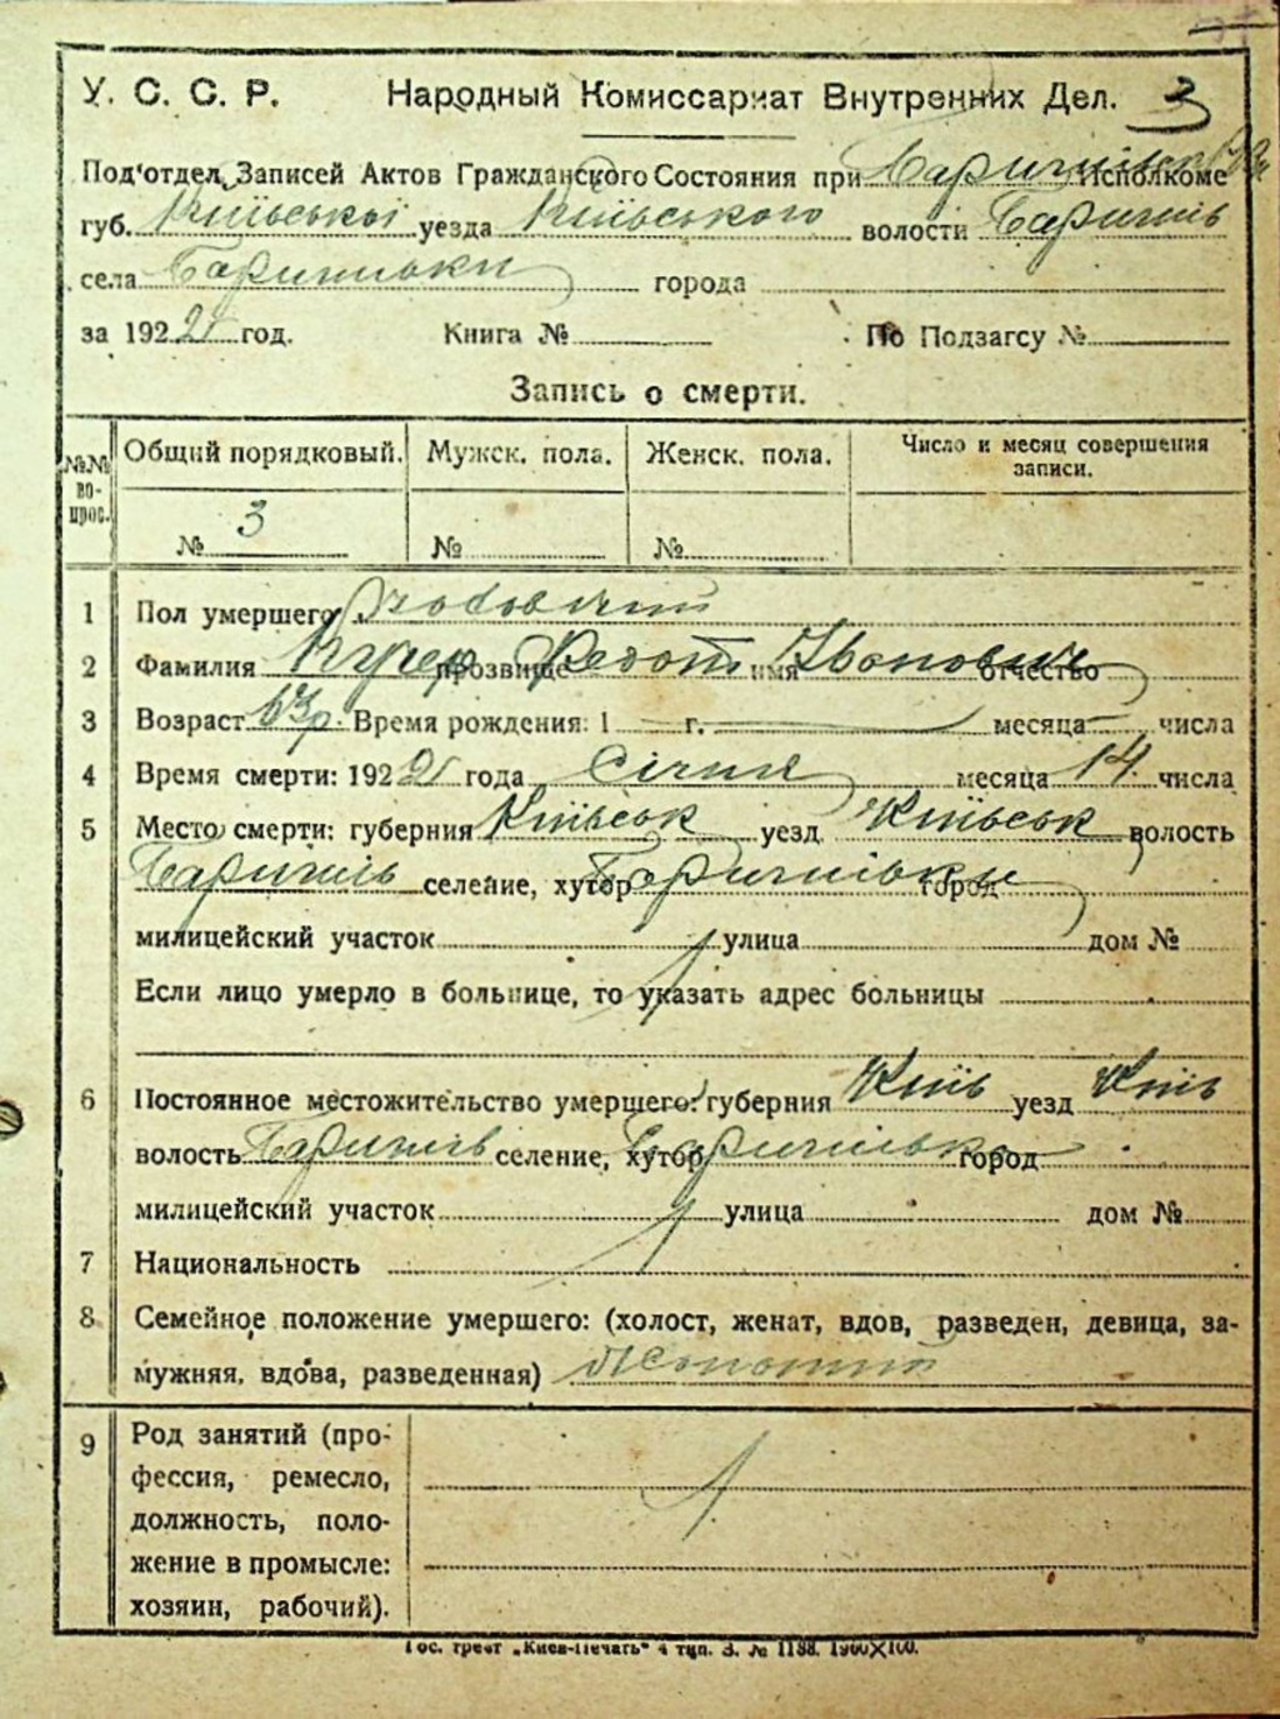 У. С. С. Р. Народный Комиссариат Внутренних Дел. 3
Под'отдел Записей Актов Гражданского Состояния при Исполкоме
губ. Київської уезда Київського волости Баришів
села Баришівки города
за 192 год. Книга № По Подзагсу №
Запись о смерти.
№№ вопрос. Общий порядковый. Мужск. пола. Женск. пола. Число и месяц совершения записи.
№ 3 № №
1 Пол умершего
2 Фамилия Кучер прозвище Федот имя Іванович отчество
3 Возраст 63 р. Время рождения: 1 г. месяца числа
4 Время смерти: 192 года Січня месяца 14 числа
5 Место смерти: губерния Київськ уезд Київськ волость
Баришів селение, хутор Баришівки город
милицейский участок улица дом №
Если лицо умерло в больнице, то указать адрес больницы
6 Постоянное местожительство умершего: губерния Київ уезд Київ
волость Баришів селение, хутор Баришівка город
милицейский участок улица дом №
7 Национальность
8 Семейное положение умершего: (холост, женат, вдов, разведен, девица, за-
мужняя, вдова, разведенная) Жонатий
9 Род занятий (про-
фессия, ремесло,
должность, поло-
жение в промысле:
хозяин, рабочий).
Гос. трест „Киев-Печать" 4 тип. З. № 1188. 1900×100.